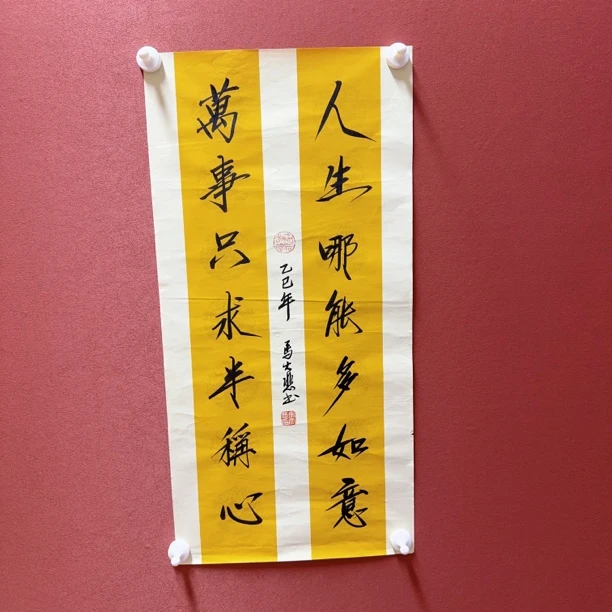 人生哪能多如意
萬事只求半稱心
乙巳年 馬大懋书